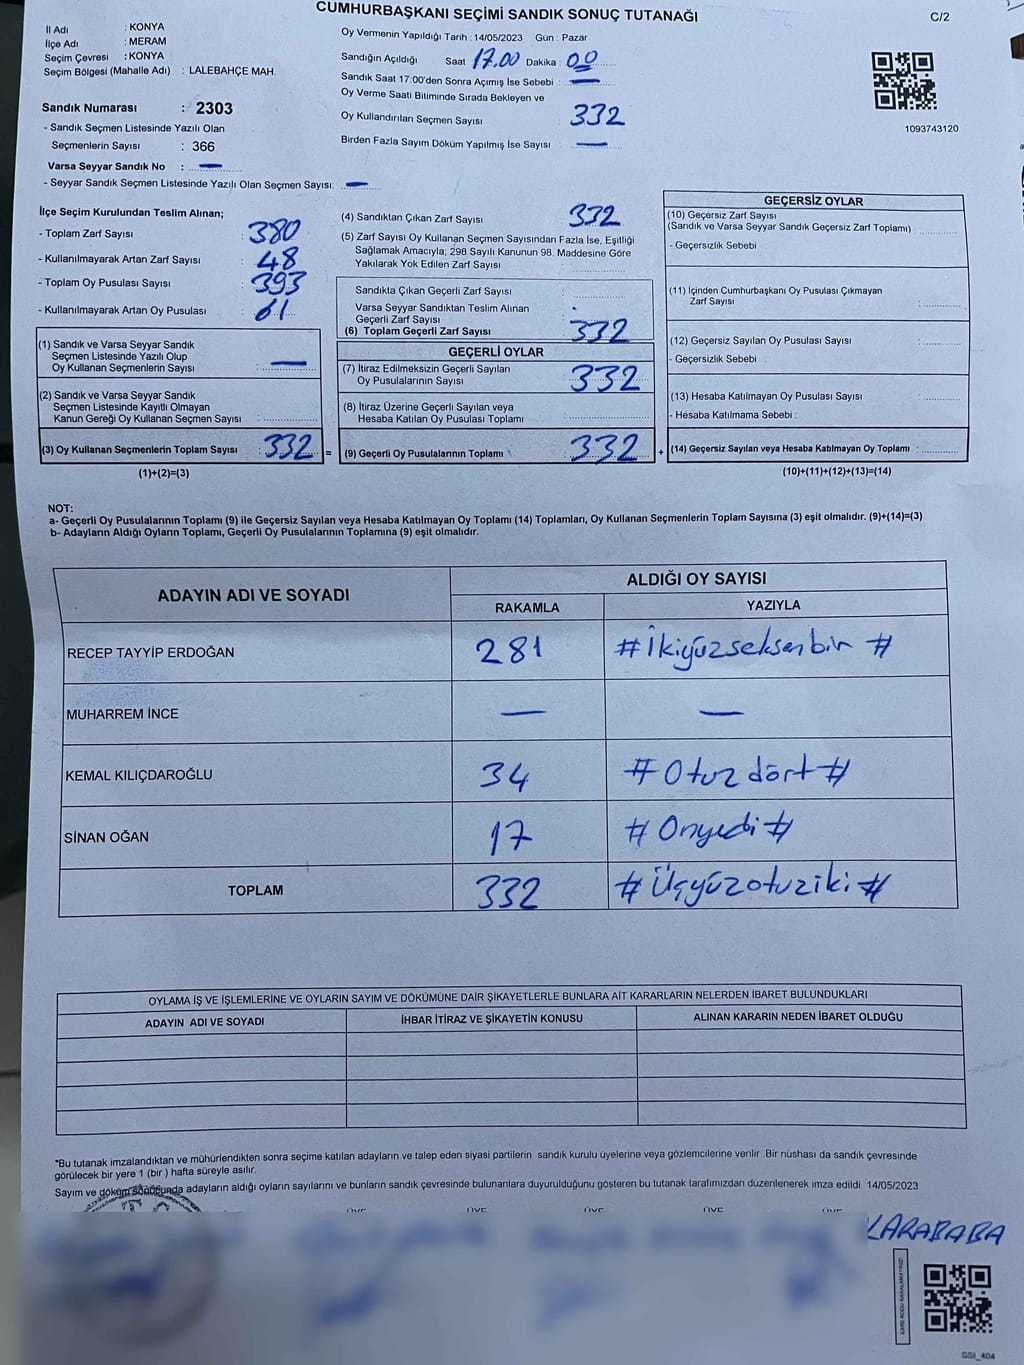 CUMHURBAŞKANI SEÇİMİ SANDIK SONUÇ TUTANAĞI
C/2
İl Adı : KONYA
İlçe Adı : MERAM
Seçim Çevresi : KONYA
Seçim Bölgesi (Mahalle Adı) : LALEBAHÇE MAH.
Sandık Numarası : 2303
- Sandık Seçmen Listesinde Yazılı Olan
Seçmenlerin Sayısı : 366
Varsa Seyyar Sandık No : —
- Seyyar Sandık Seçmen Listesinde Yazılı Olan Seçmen Sayısı: —
Oy Vermenin Yapıldığı Tarih : 14/05/2023 Gün : Pazar
Sandığın Açıldığı Saat 17.00 Dakika : 00
Sandık Saat 17.00'den Sonra Açımış İse Sebebi : —
Oy Verme Saati Bitiminde Sırada Bekleyen ve
Oy Kullandırılan Seçmen Sayısı 332
Birden Fazla Sayım Döküm Yapılmış İse Sayısı —
1093743120
İlçe Seçim Kurulundan Teslim Alınan;
- Toplam Zarf Sayısı : 380
- Kullanılmayarak Artan Zarf Sayısı : 48
- Toplam Oy Pusulası Sayısı : 393
- Kullanılmayarak Artan Oy Pusulası : 61
(1) Sandık ve Varsa Seyyar Sandık
Seçmen Listesinde Yazılı Olup
Oy Kullanan Seçmenlerin Sayısı : —
(2) Sandık ve Varsa Seyyar Sandık
Seçmen Listesinde Kayıtlı Olmayan
Kanun Gereği Oy Kullanan Seçmen Sayısı :
(3) Oy Kullanan Seçmenlerin Toplam Sayısı : 332 =
(1)+(2)=(3)
(4) Sandıktan Çıkan Zarf Sayısı 332
(5) Zarf Sayısı Oy Kullanan Seçmen Sayısından Fazla İse, Eşitliği
Sağlamak Amacıyla; 298 Sayılı Kanunun 98. Maddesine Göre
Yakılarak Yok Edilen Zarf Sayısı :
Sandıkta Çıkan Geçerli Zarf Sayısı
Varsa Seyyar Sandıktan Teslim Alınan
Geçerli Zarf Sayısı
(6) Toplam Geçerli Zarf Sayısı 332
GEÇERLİ OYLAR
(7) İtiraz Edilmeksizin Geçerli Sayılan
Oy Pusulalarının Sayısı 332
(8) İtiraz Üzerine Geçerli Sayılan veya
Hesaba Katılan Oy Pusulası Toplamı
(9) Geçerli Oy Pusulalarının Toplamı : 332 +
GEÇERSİZ OYLAR
(10) Geçersiz Zarf Sayısı
(Sandık ve Varsa Seyyar Sandık Geçersiz Zarf Toplamı) :
- Geçersizlik Sebebi :
(11) İçinden Cumhurbaşkanı Oy Pusulası Çıkmayan
Zarf Sayısı :
(12) Geçersiz Sayılan Oy Pusulası Sayısı :
- Geçersizlik Sebebi :
(13) Hesaba Katılmayan Oy Pusulası Sayısı :
- Hesaba Katılmama Sebebi :
(14) Geçersiz Sayılan veya Hesaba Katılmayan Oy Toplamı :
(10)+(11)+(12)+(13)=(14)
NOT:
a- Geçerli Oy Pusulalarının Toplamı (9) ile Geçersiz Sayılan veya Hesaba Katılmayan Oy Toplamı (14) Toplamları, Oy Kullanan Seçmenlerin Toplam Sayısına (3) eşit olmalıdır. (9)+(14)=(3)
b- Adayların Aldığı Oyların Toplamı, Geçerli Oy Pusulalarının Toplamına (9) eşit olmalıdır.
ADAYIN ADI VE SOYADI ALDIĞI OY SAYISI
RAKAMLA YAZIYLA
RECEP TAYYİP ERDOĞAN 281 # İkiyüzseksenbir #
MUHARREM İNCE — —
KEMAL KILIÇDAROĞLU 34 # Otuz dört #
SİNAN OĞAN 17 # Onyedi #
TOPLAM 332 # Üçyüzotuziki #
OYLAMA İŞ VE İŞLEMLERİNE VE OYLARIN SAYIM VE DÖKÜMÜNE DAİR ŞİKAYETLERLE BUNLARA AİT KARARLARIN NELERDEN İBARET BULUNDUKLARI
ADAYIN ADI VE SOYADI İHBAR İTİRAZ VE ŞİKAYETİN KONUSU ALINAN KARARIN NEDEN İBARET OLDUĞU
*Bu tutanak imzalandıktan ve mühürlendikten sonra seçime katılan adayların ve talep eden siyasi partilerin sandık kurulu üyelerine veya gözlemcilerine verilir .Bir nüshası da sandık çevresinde
görülecek bir yere 1 (bir ) hafta süreyle asılır.
Sayım ve döküm sonucunda adayların aldığı oyların sayılarını ve bunların sandık çevresinde bulunanlara duyurulduğunu gösteren bu tutanak tarafımızdan düzenlenerek imza edildi. 14/05/2023
ÜYE ÜYE ÜYE ÜYE ÜYE
KARABABA
KARE KODU KARALAMAYINIZ!
SSI_404